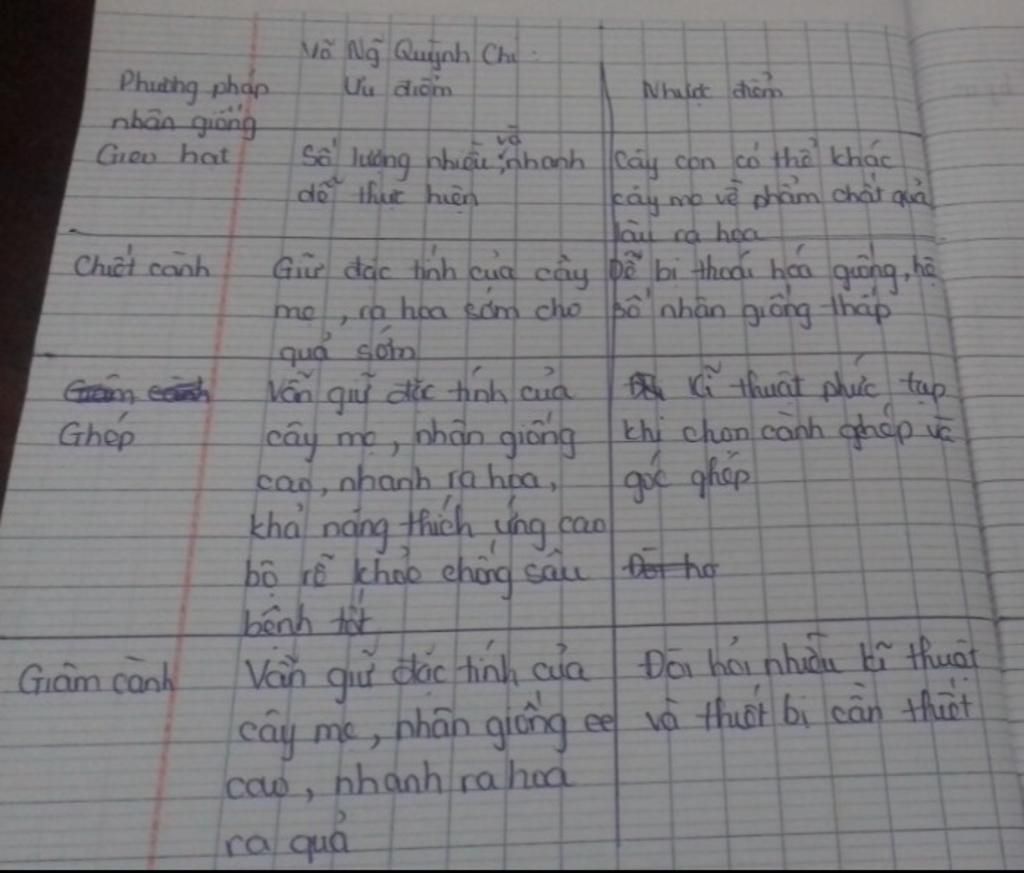 Võ Ng̃ Quỳnh Chi
Phương pháp nhân giống
Ưu điểm
Nhược điểm
Gieo hạt
Số lượng nhiều, và nhanh
dễ thực hiện
Cây con có thể khác
cây mẹ về phẩm chất quả
lâu ra hoa
Chiết cành
Giữ đặc tính của cây
mẹ, ra hoa sớm cho
quả sớm
Dễ bị thoái hóa giống, hệ
số nhân giống thấp
Ghép
Vẫn giữ đặc tính của
cây mẹ, nhân giống
cao, nhanh ra hoa,
khả năng thích ứng cao
bộ rễ khỏe chống sâu
bệnh tốt
Kĩ thuật phức tạp
khi chọn cành ghép và
gốc ghép
Giâm cành
Vẫn giữ đặc tính của
cây mẹ, nhân giống
cao, nhanh ra hoa
ra quả
Đòi hỏi nhiều kĩ thuật
và thiết bị cần thiết